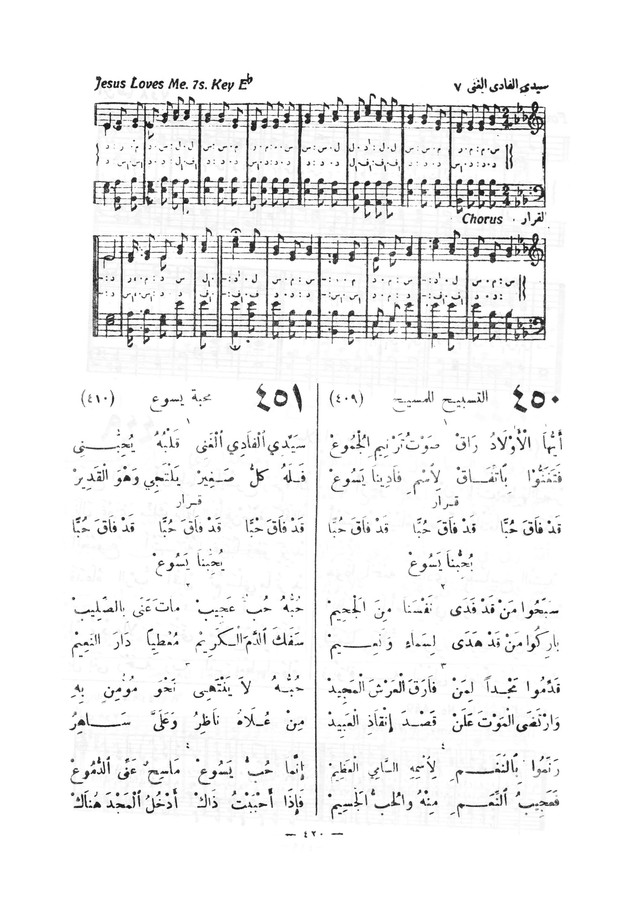 Jesus Loves Me. 7s. Key E♭
سيدي الفادي الغني ٧
Chorus القرار
٤٥٠ التسبيح للمسيح (٤٠٩)
١
أَيُّهَا الْأَوْلَادُ رَاقْ صَوْتُ تَرْنِيمِ الْجُمُوعْ
فَتَغَنَّوْا بِاتِّفَاقْ لِاسْمِ فَادِينَا يَسُوعْ
قرار
قَدْ فَاقَ حُبًّا قَدْ فَاقَ حُبًّا قَدْ فَاقَ حُبًّا
يُحِبُّنَا يَسُوعْ
٢
سَبِّحُوا مَنْ قَدْ فَدَى نَفْسَنَا مِنَ الْجَحِيمِ
بَارِكُوا مَنْ قَدْ هَدَى لِسَمَاءٍ وَنَعِيمِ
٣
قَدِّمُوا مَجْداً لِمَنْ فَارَقَ الْعَرْشَ الْمَجِيدْ
وَارْتَضَى الْمَوْتَ عَلَنْ قَصْدَ إِنْقَاذِ الْعَبِيدْ
٤
رَنِّمُوا بِالنَّغَمِ لِاسْمِهِ السَّامِي الْعَظِيمْ
فَعَجِيبُ النِّعَمِ مِنْهُ وَالْحُبُّ الْجَسِيمْ
٤٥١ محبة يسوع (٤١٠)
١
سَيِّدِي الْفَادِي الْغَنِي قَلْبُهُ يُحِبُّنِي
فَلَهُ كُلُّ صَغِيرْ يَلْتَجِي وَهْوَ الْقَدِيرْ
قرار
قَدْ فَاقَ حُبًّا قَدْ فَاقَ حُبًّا قَدْ فَاقَ حُبًّا
يُحِبُّنَا يَسُوعْ
٢
حُبُّهُ حُبٌّ عَجِيبْ مَاتَ عَنِّي بِالصَّلِيبْ
سَفَكَ الدَّمَ الْكَرِيمْ مُعْطِياً دَارَ النَّعِيمْ
٣
حُبُّهُ لَا يَنْتَهِي نَحْوَ مُؤْمِنٍ بِهِ
مِنْ عُلَاهُ نَاظِرُ وَعَلَيَّ سَاهِرُ
٤
إِنَّمَا حُبُّ يَسُوعْ مَاسِحٌ عَنِّي الدُّمُوعْ
فَإِذَا أَحْبَبْتُ ذَاكْ أَدْخُلُ الْمَجْدَ هُنَاكْ
— ٤٢٠ —